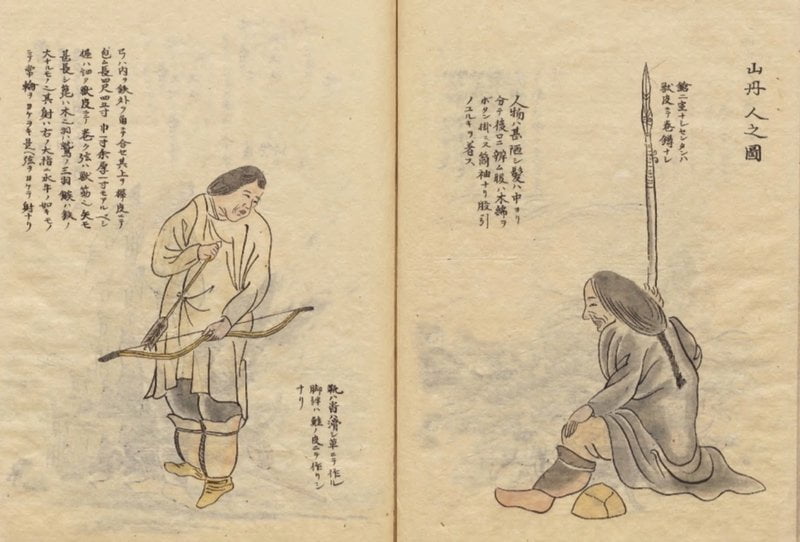 山丹人之圖
鎗二重ナレセンタンハ
獣皮ニテ巻
人物ハ甚陋シ髪ハ中ヨリ
分テ後ロニ辮ム服ハ木綿ヲ
ボタン掛ニス筒袖ナリ股引
ノユルキヲ着ス
弓ハ内ヲ鉄外ヲ角ニテ合セ其上ヲ樺皮ニテ
包ム長四尺四五寸巾一寸余厚一寸モアルベシ
獣皮ニテ巻ク弦ハ獣筋 矢モ
甚長シ箆ハ木之羽ハ鷲ノ三羽鏃ハ鉄ノ
大ナルモノ之其射ハ右ノ指ニ水牛ノ如キモノ
ニテ 輪ヲ 是ヘ弦ヲ 射ナリ
ハ滑シ革ニテ作ル
脚絆ハ鮭ノ皮ニテ作リシ
ナリ